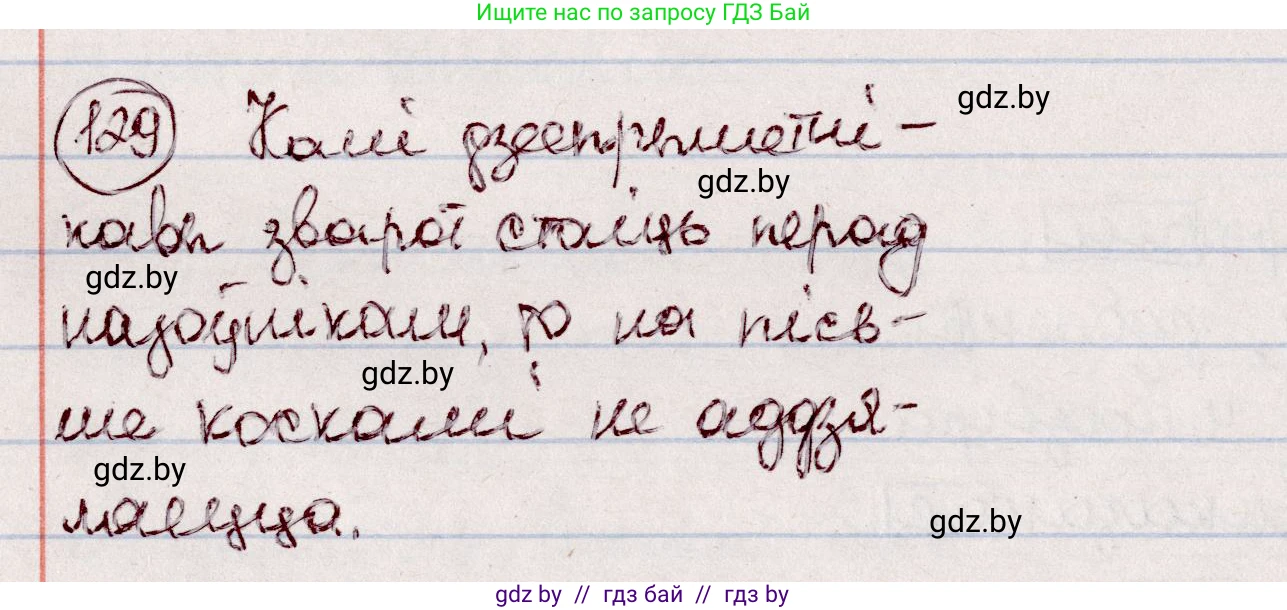 Ищите нас по запросу ГДЗ Бай
129 Калі дзеепрыметні-
gdz.by
gdz.by
кавы зварот стаіць перад
gdz.by
назоўнікам, то на пісь-
gdz.by
ме коскамі не аддзя-
gdz.by
ляецца.
gdz.by
gdz by // гдз бай // gdz by